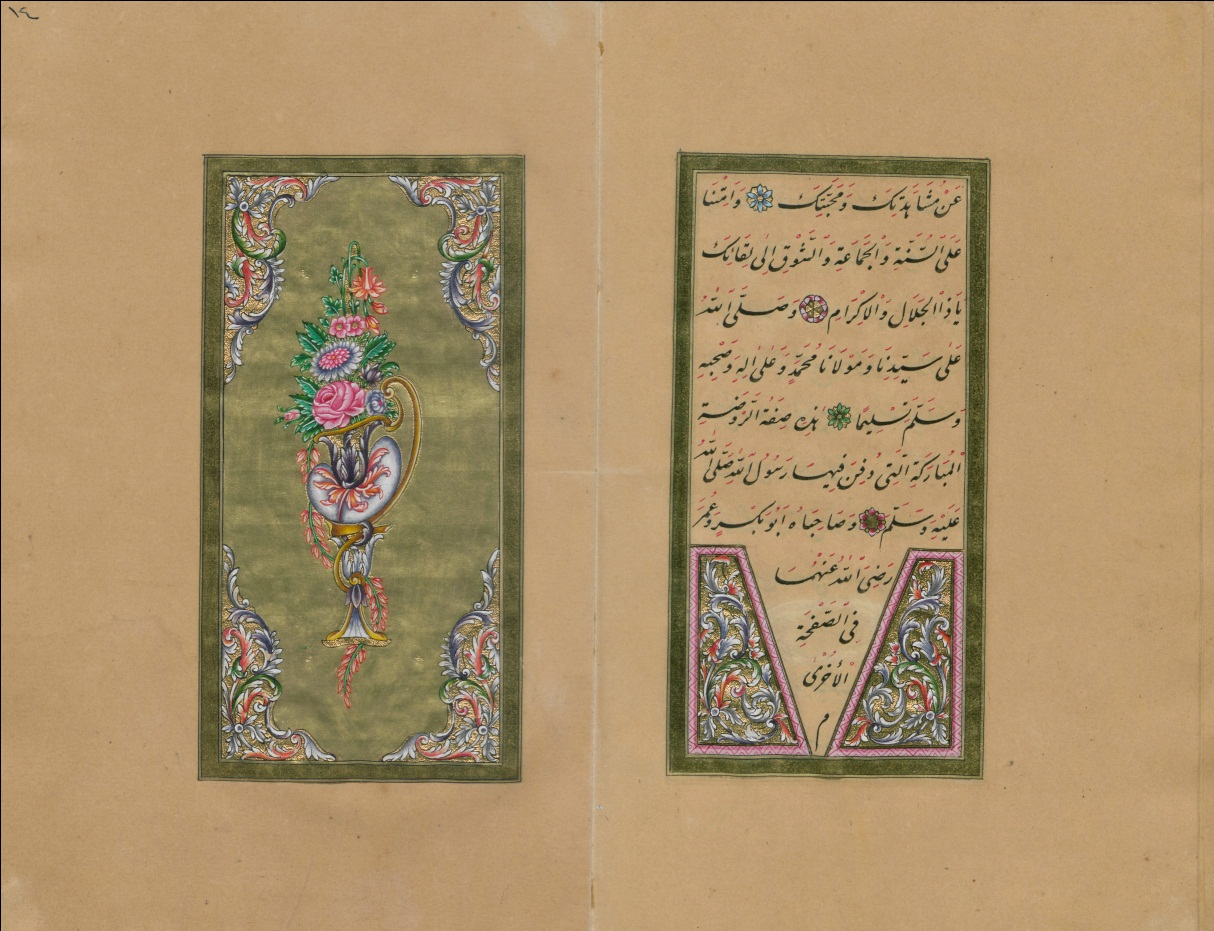 ١٤
عَنْ مُشَاهَدَتِكَ وَمَحَبَّتِكَ وَامِتْنَا
عَلَى السُّنَّةِ وَالْجَمَاعَةِ وَالشَّوْقِ اِلٰى لِقَائِكَ
يَا ذَا الْجَلَالِ وَالْاِكْرَامِ وَصَلَّى اللّٰهُ
عَلٰى سَيِّدِنَا وَمَوْلَانَا مُحَمَّدٍ وَعَلٰى اٰلِهِ وَصَحْبِهِ
وَسَلَّمَ تَسْلِيمًا هٰذِهِ صِفَةُ الرَّوْضَةِ
الْمُبَارَكَةِ الَّتِى دُفِنَ فِيهَا رَسُولُ اللّٰهِ صَلَّى اللّٰهُ
عَلَيْهِ وَسَلَّمَ وَصَاحِبَاهُ اَبُو بَكْرٍ وَعُمَرَ
رَضِىَ اللّٰهُ عَنْهُمَا
فِى الصَّفْحَةِ
الْأُخْرٰى
م